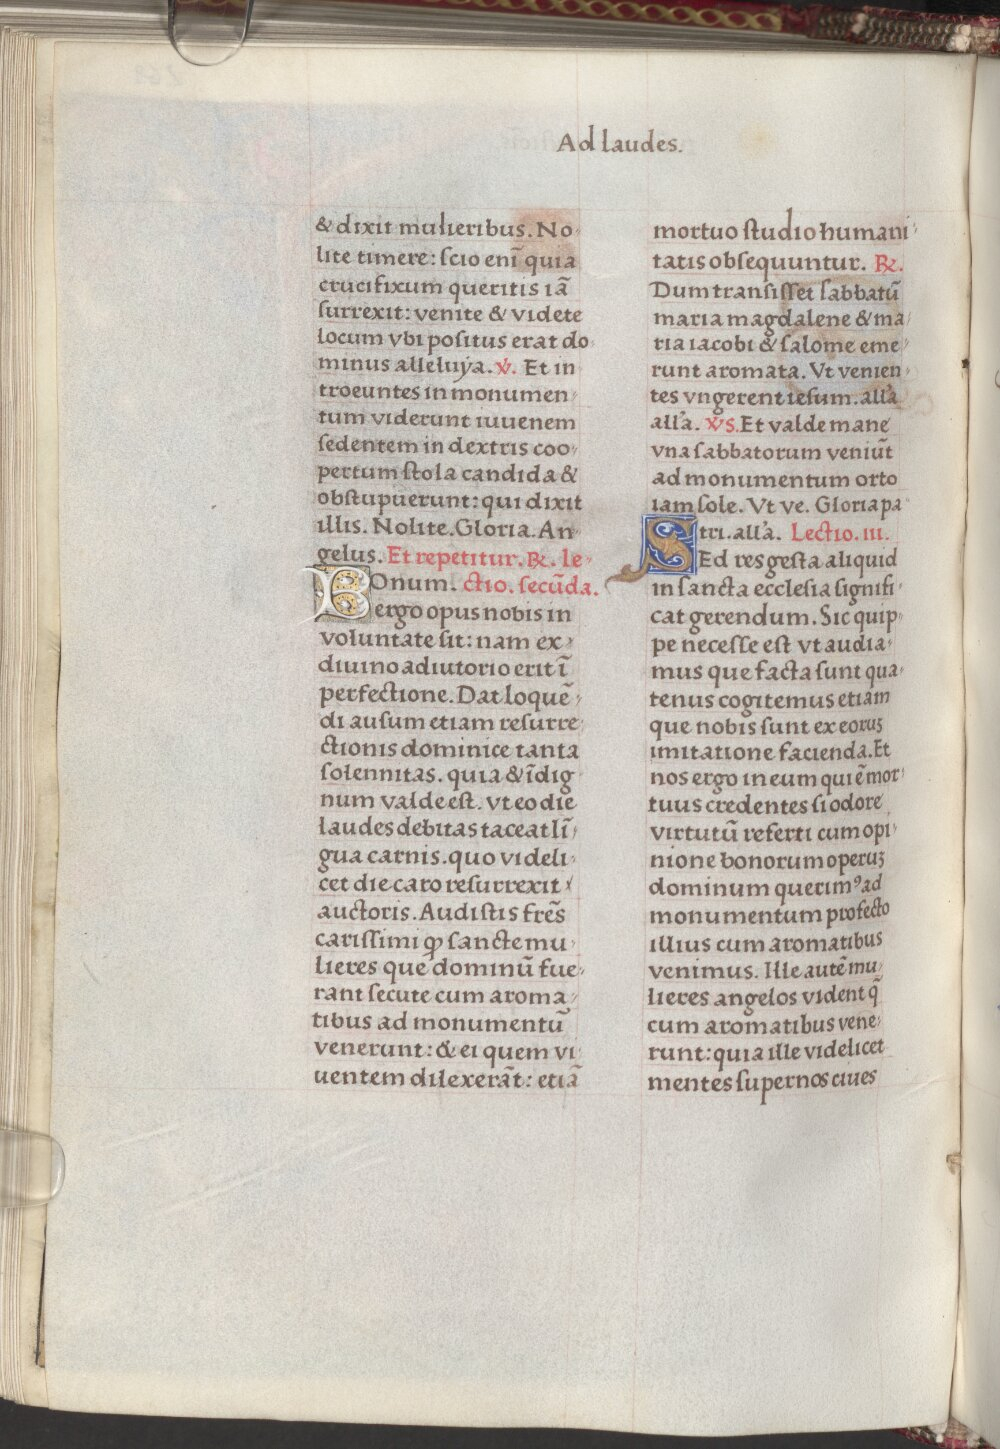 Ad laudes.
& dixit mulieribus. No-
lite timere: scio enī quia
crucifixum queritis iā
surrexit: venite & videte
locum vbi positus erat do-
minus alleluya. ℣. Et in-
troeuntes in monumen-
tum viderunt iuuenem
sedentem in dextris coo-
pertum stola candida &
obstupuerunt: qui dixit
illis. Nolite. Gloria. An-
gelus. Et repetitur. ℞. le-
BOnum. ctio. secūda.
ergo opus nobis in
voluntate sit: nam ex-
diuino adiutorio erit ī
perfectione. Dat loquē-
di ausum etiam resurre-
ctionis dominice tanta
solennitas. quia & īdig-
num valde est. vt eo die
laudes debitas taceat lī-
gua carnis. quo videli-
cet die caro resurrexit
auctoris. Audistis frēs
carissimi ꝙ sancte mu-
lieres que dominū fue-
rant secute cum aroma-
tibus ad monumentū
venerunt: & ei quem vi-
uentem dilexerāt: etiā
mortuo studio humani-
tatis obsequuntur. ℞.
Dum transisset sabbatū
maria magdalene & ma-
ria iacobi & salome eme-
runt aromata. Vt venien-
tes vngerent iesum. all'a
all'a. ℣s. Et valde mane
vna sabbatorum veniūt
ad monumentum orto
iam sole. Vt ve. Gloria pa-
tri. all'a. Lectio. iii.
SEd res gesta aliquid
in sancta ecclesia signifi-
cat gerendum. Sic quip-
pe necesse est vt audia-
mus que facta sunt qua-
tenus cogitemus etiam
que nobis sunt ex eoruꝫ
imitatione facienda. Et
nos ergo in eum qui ē mor-
tuus credentes si odore
virtutū referti cum opi-
nione bonorum operuꝫ
dominum querimꝰ ad
monumentum profecto
illius cum aromatibus
venimus. Ille autē mu-
lieres angelos vident q̄
cum aromatibus vene-
runt: quia ille videlicet
mentes supernos ciues